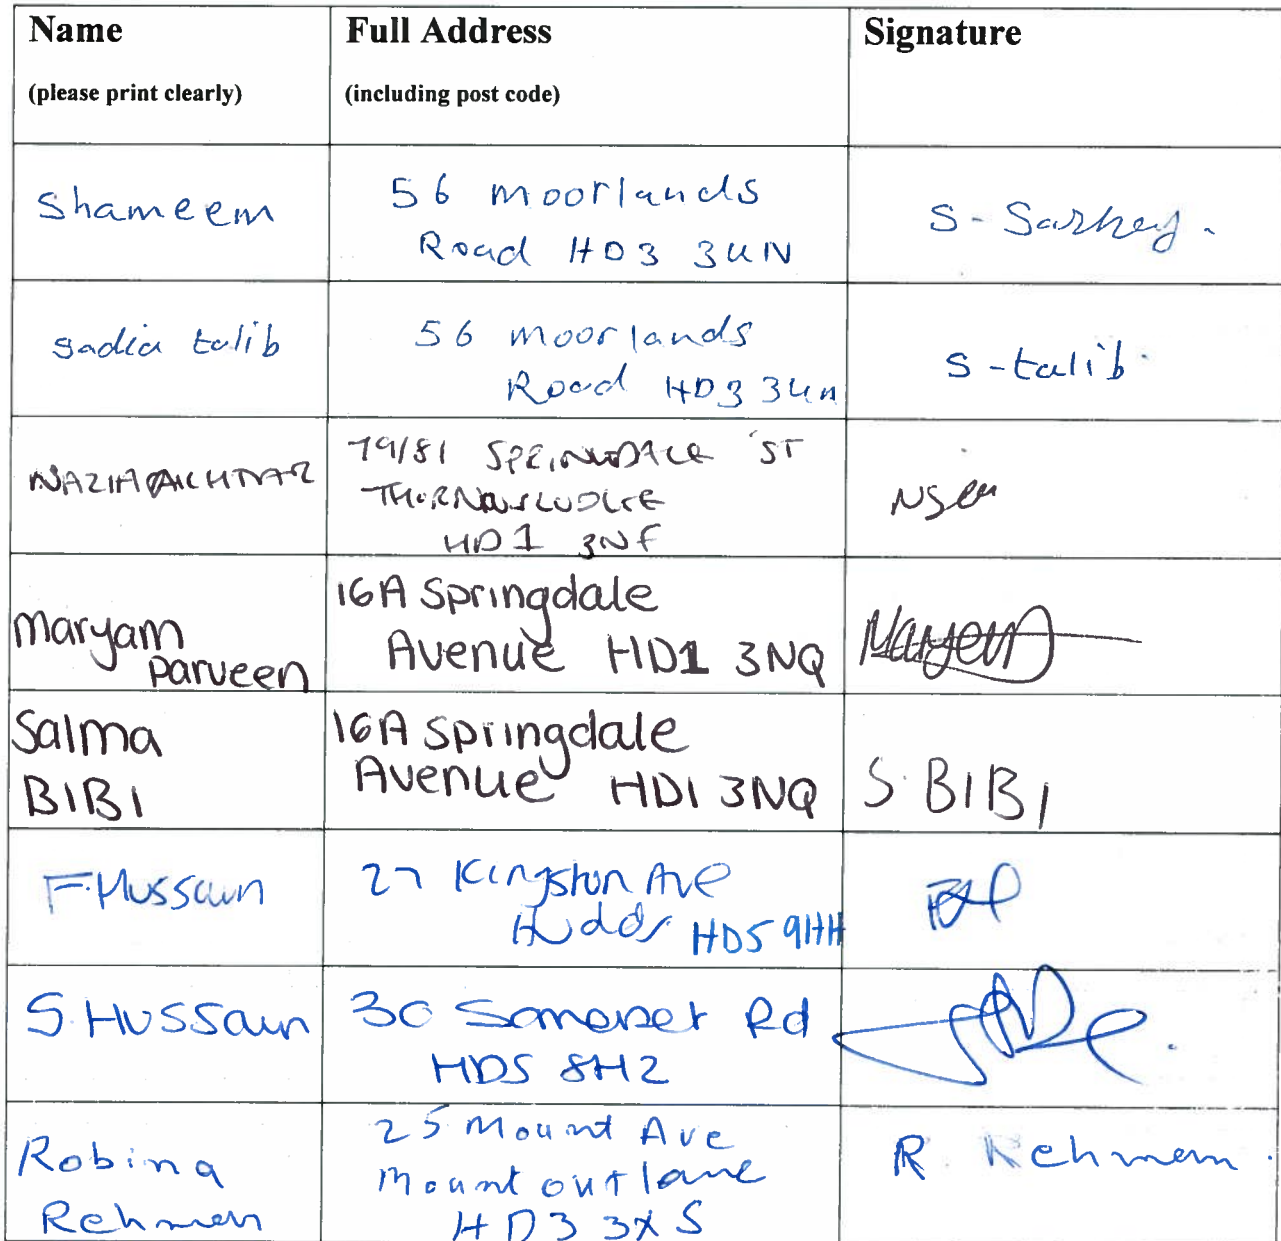 Name
(please print clearly)
Full Address
(including post code)
Signature
Shameem
56 moorlands
Road HD3 3UN
S-
sadia talib
56 moorlands
Road HD3 3un
S-talib
NAZIA AKHTAR
79/81 SPRINGDALE ST
HD1 3NF
Maryam
Parveen
16A Springdale
Avenue HD1 3NQ
Salma
BIBI
16A Springdale
Avenue HD1 3NQ
S. BIBI
F. Hussain
27 Kingston Ave
Hudds HD5 9HH
S Hussain
30 Somerset Rd
HD5 8HZ
Robina
Rehman
25 Mount Ave
Mount outlane
HD3 3XS
R. Rehman.